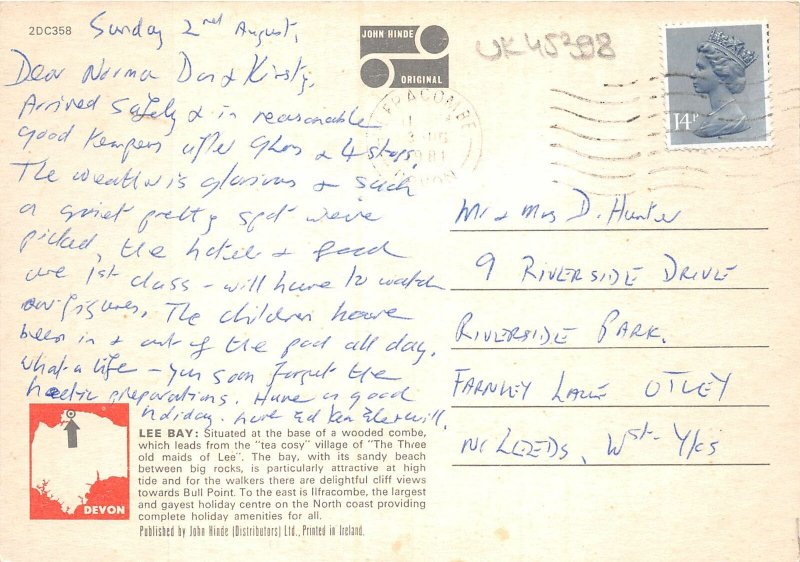 2DC358
Sunday 2nd August,
JOHN HINDE
ORIGINAL
UK45398
14P
Dear Norma Don & Kirsty,
Arrived safely & in reasonable
good tempers after 9hrs & 4 stops.
The weather is glorious & such
a quiet pretty spot we've
picked, the hotel & food
are 1st class - will have to watch
our figures. The children have
been in & out of the pool all day.
What a life - you soon forget the
hectic preparations. Have a good
holiday. Love Ed
Mr & Mrs D. Hunter
9 RIVERSIDE DRIVE
RIVERSIDE PARK.
FARNLEY LANE OTLEY
Nr LEEDS, West Yks
LEE BAY: Situated at the base of a wooded combe,
which leads from the "tea cosy" village of "The Three
old maids of Lee". The bay, with its sandy beach
between big rocks, is particularly attractive at high
tide and for the walkers there are delightful cliff views
towards Bull Point. To the east is Ilfracombe, the largest
and gayest holiday centre on the North coast providing
complete holiday amenities for all.
Published by John Hinde (Distributors) Ltd., Printed in Ireland.
DEVON